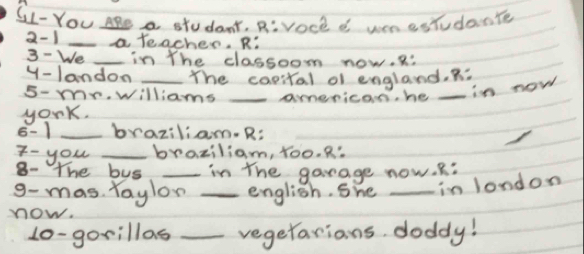 G1-You ARE a student. R: você é um estudante
2-I ___ a teacher. R:
3-We ___ in the classoom now. R:
4-london ___ the capital of england. R:
5-mr. williams ___ american. he ___ in now
york.
6-I ___ braziliam. R:
7-you ___ braziliam, too. R:
8-The bus ___ in the garage now. R:
9-mas. taylor ___ english. She ___ in london
now.
10-gorillas ___ vegetarians. doddy!